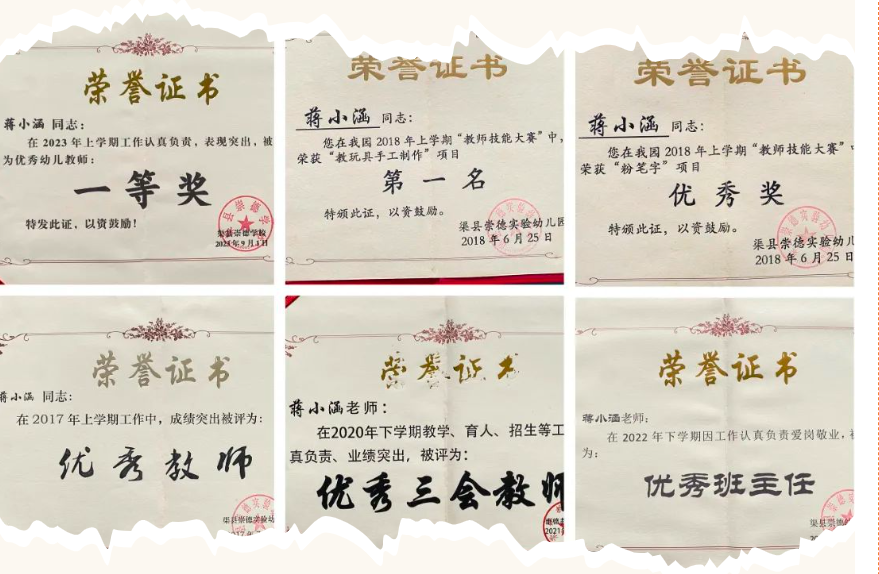 荣誉证书
蒋小涵 同志：
在 2023 年上学期工作认真负责，表现突出，被
为优秀幼儿教师：
一等奖
特发此证，以资鼓励！
渠县崇德学校
2023年9月1日
荣誉证书
蒋小涵 同志：
您在我园 2018 年上学期“教师技能大赛”中，
荣获“教玩具手工制作”项目
第一名
特颁此证，以资鼓励。
渠县崇德实验幼儿园
2018 年 6 月 25 日
荣誉证书
蒋小涵 同志：
您在我园 2018 年上学期“教师技能大赛”
荣获“粉笔字”项目
优秀奖
特颁此证，以资鼓励。
渠县崇德实验幼儿
2018 年 6 月 25 日
荣誉证书
蒋小涵 同志：
在 2017 年上学期工作中，成绩突出被评为：
优秀教师
渠县崇德实验幼
荣誉证书
蒋小涵老师：
在2020年下学期教学、育人、招生等工
真负责、业绩突出，被评为：
优秀三会教师
2021
荣誉证书
蒋小涵老师：
在 2022 年下学期因工作认真负责爱岗敬业，
为：
优秀班主任
渠县崇德